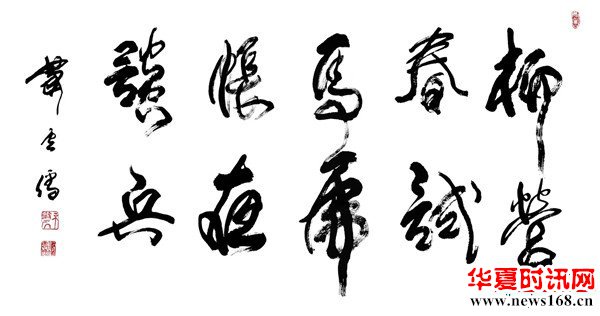 柳營
春試
馬虎
帳夜
談兵
蕭云儒
华夏时讯网
www.news168.com